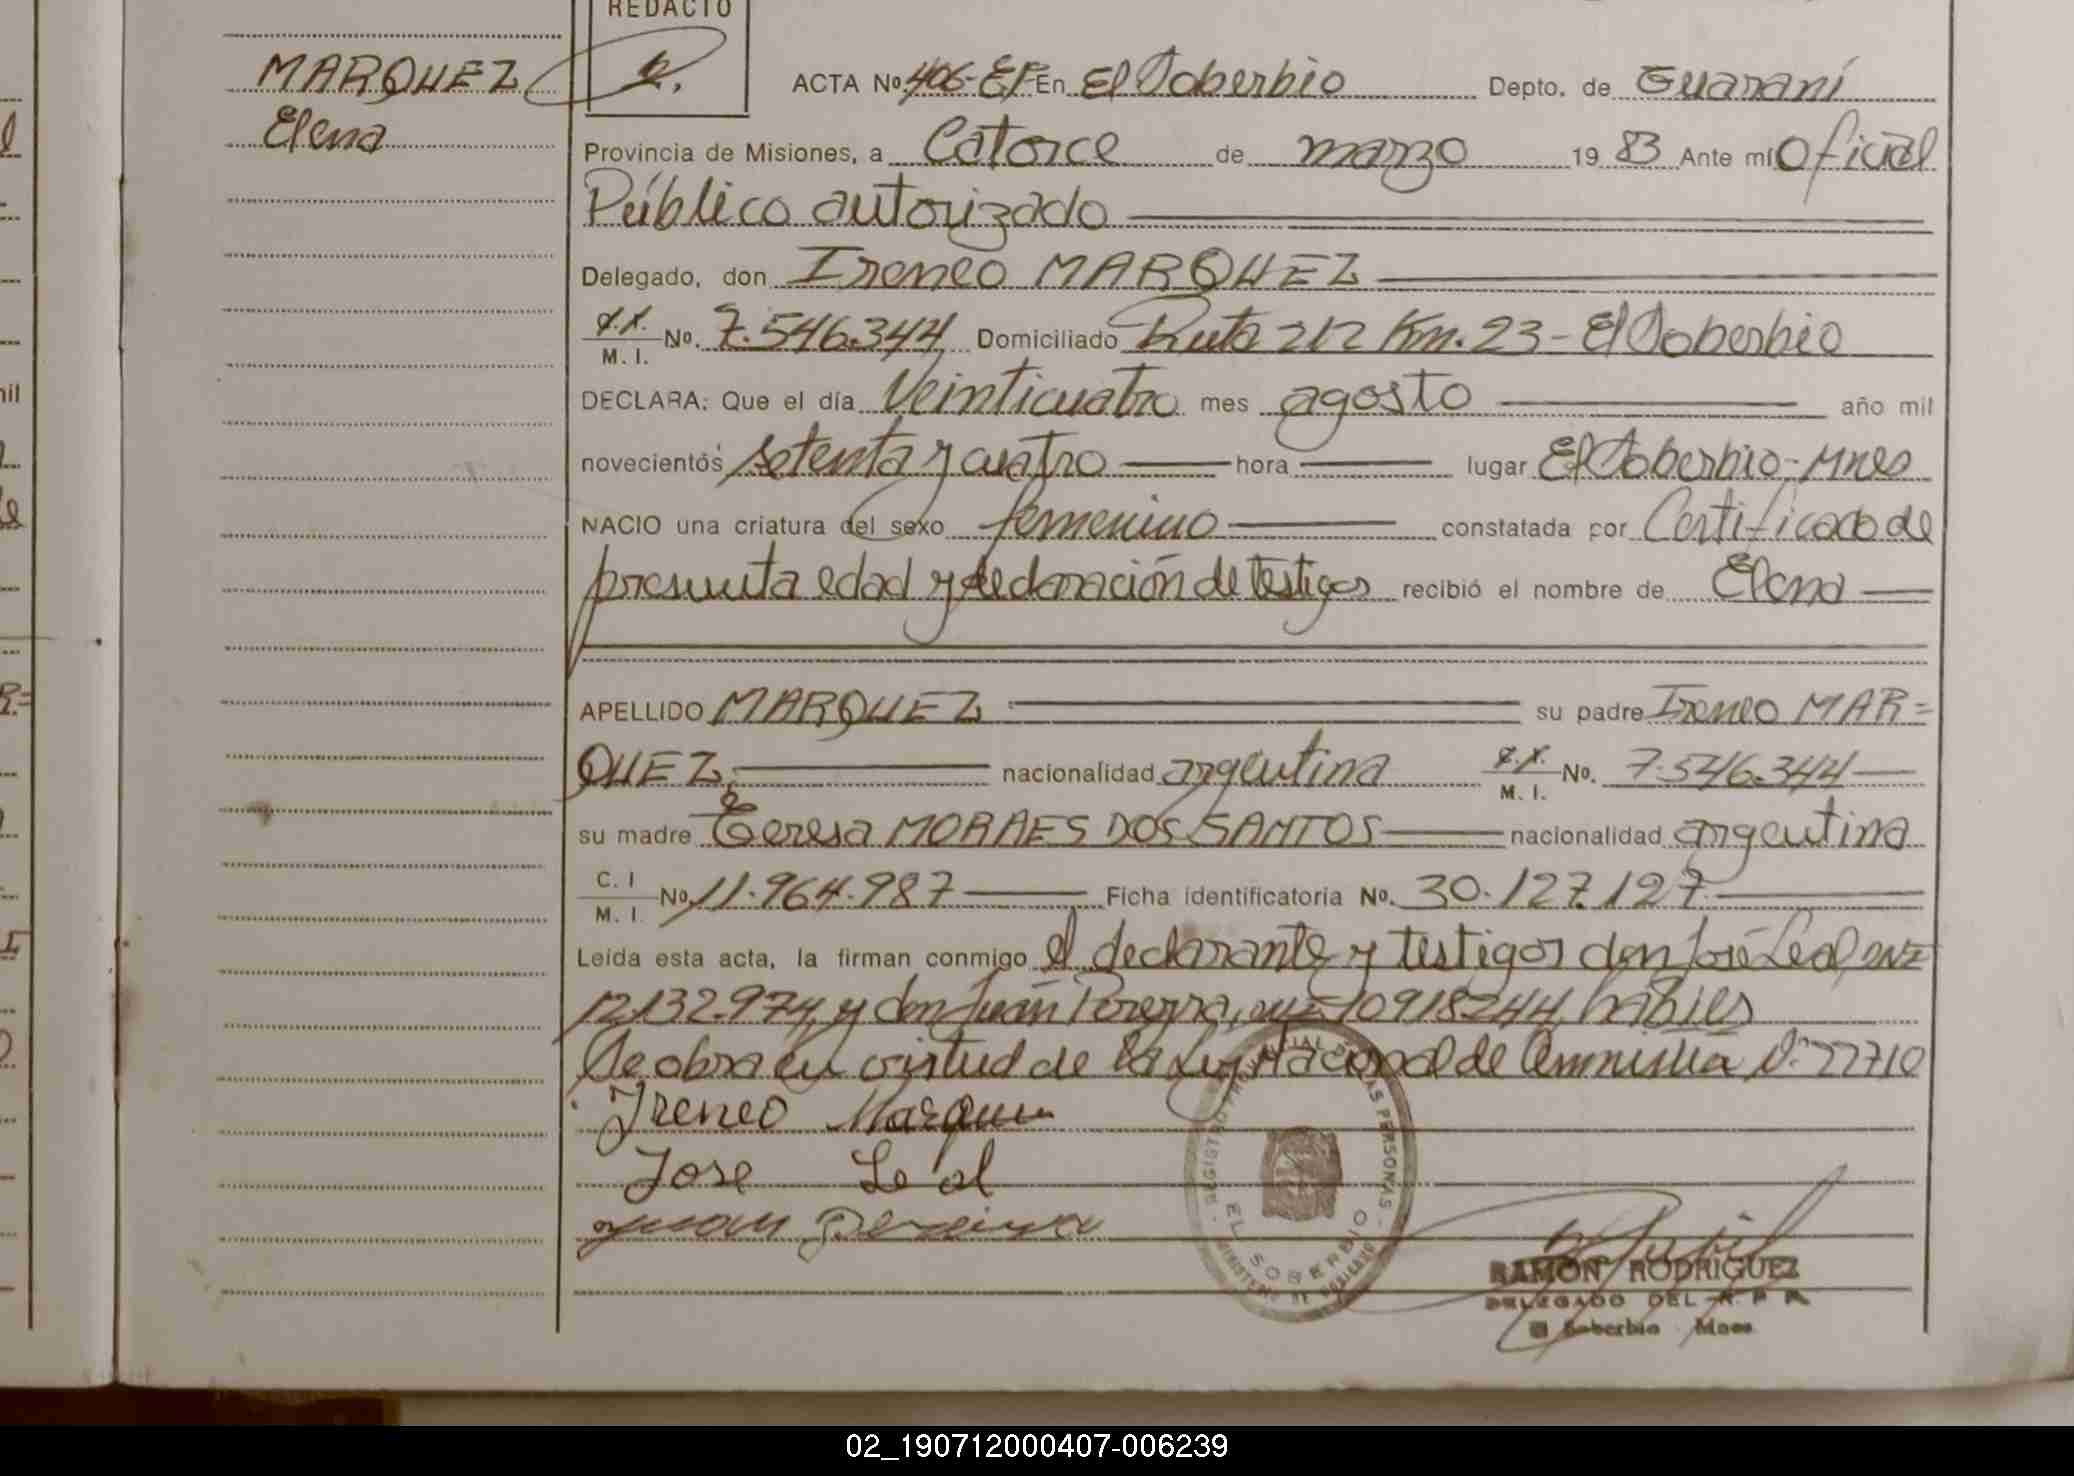 REDACTO
MARQUEZ
Elena
ACTA Nº 406-EP En El Soberbio Depto. de Guaraní
Provincia de Misiones, a Catorce de marzo 19 83 Ante mí Oficial
Público autorizado
Delegado, don Ireneo MARQUEZ
M. I. Nº. 7.546.344 Domiciliado Ruta 212 Km. 23 - El Soberbio
DECLARA: Que el día Veinticuatro mes agosto año mil
novecientos setenta y cuatro hora lugar El Soberbio - Mnes
NACIO una criatura del sexo femenino constatada por Certificado de
presunta edad y declaración de testigos recibió el nombre de Elena
APELLIDO MARQUEZ su padre Ireneo MAR=
QUEZ nacionalidad argentina M. I. Nº. 7.546.344
su madre Teresa MORAES DOS SANTOS nacionalidad argentina
C. I M. I. Nº 11.964.987 Ficha identificatoria Nº. 30.127.127
Leída esta acta, la firman conmigo el declarante y testigos don José Leal, DNI
12.132.974, y don Juán Pereyra, 10918244, hábiles
Se obra en virtud de la Ley Nacional de Amnistia Nº 22710
Ireneo Marquez
Jose Leal
Juan Pereira
REGISTRO PROVINCIAL DE LAS PERSONAS
EL SOBERBIO
MINISTERIO DE GOBIERNO
RAMON RODRIGUEZ
DELEGADO DEL R. P. P.
El Soberbio Mnes
02_190712000407-006239